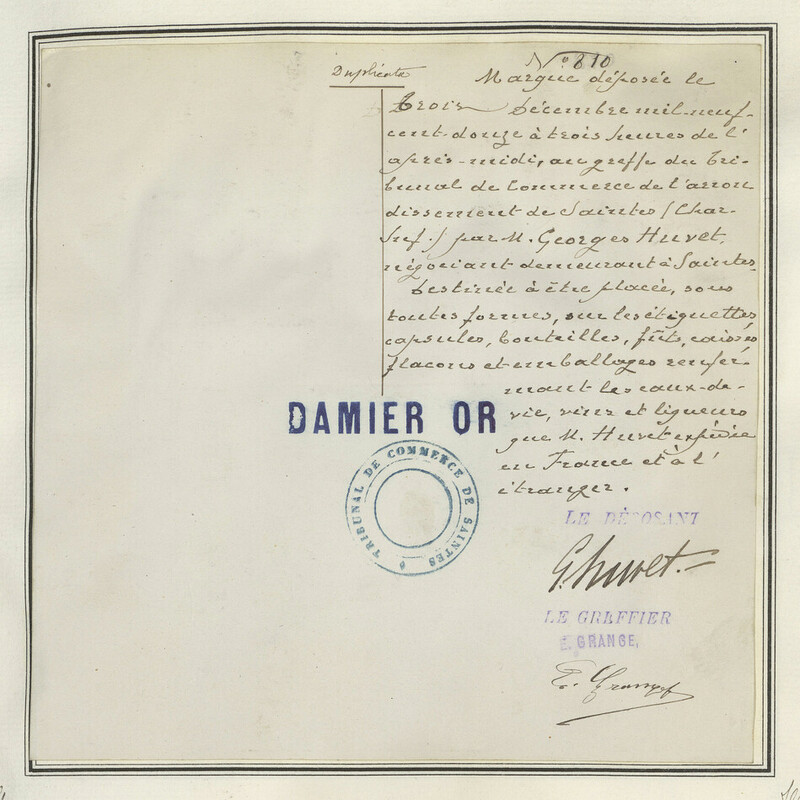 Duplicata
N° 810
Marque déposée le
trois Décembre mil-neuf-
cent-douze à trois heures de l'
après-midi, au greffe du Tri-
bunal de Commerce de l'arron
dissement de Saintes (Char-
Inf.) par M. Georges Huvet,
négociant demeurant à Saintes.
Destinée à être placée, sous
toutes formes, sur les étiquettes
capsules, bouteilles, fûts, caisses
flacons et emballages renfer-
mant les eaux-de-
vie, vins et liqueurs
que M. Huvet expédie
en France et à l'
étranger.
DAMIER OR
TRIBUNAL DE COMMERCE DE SAINTES
LE DÉPOSANT
G. Huvet.
LE GREFFIER
E. GRANGE,